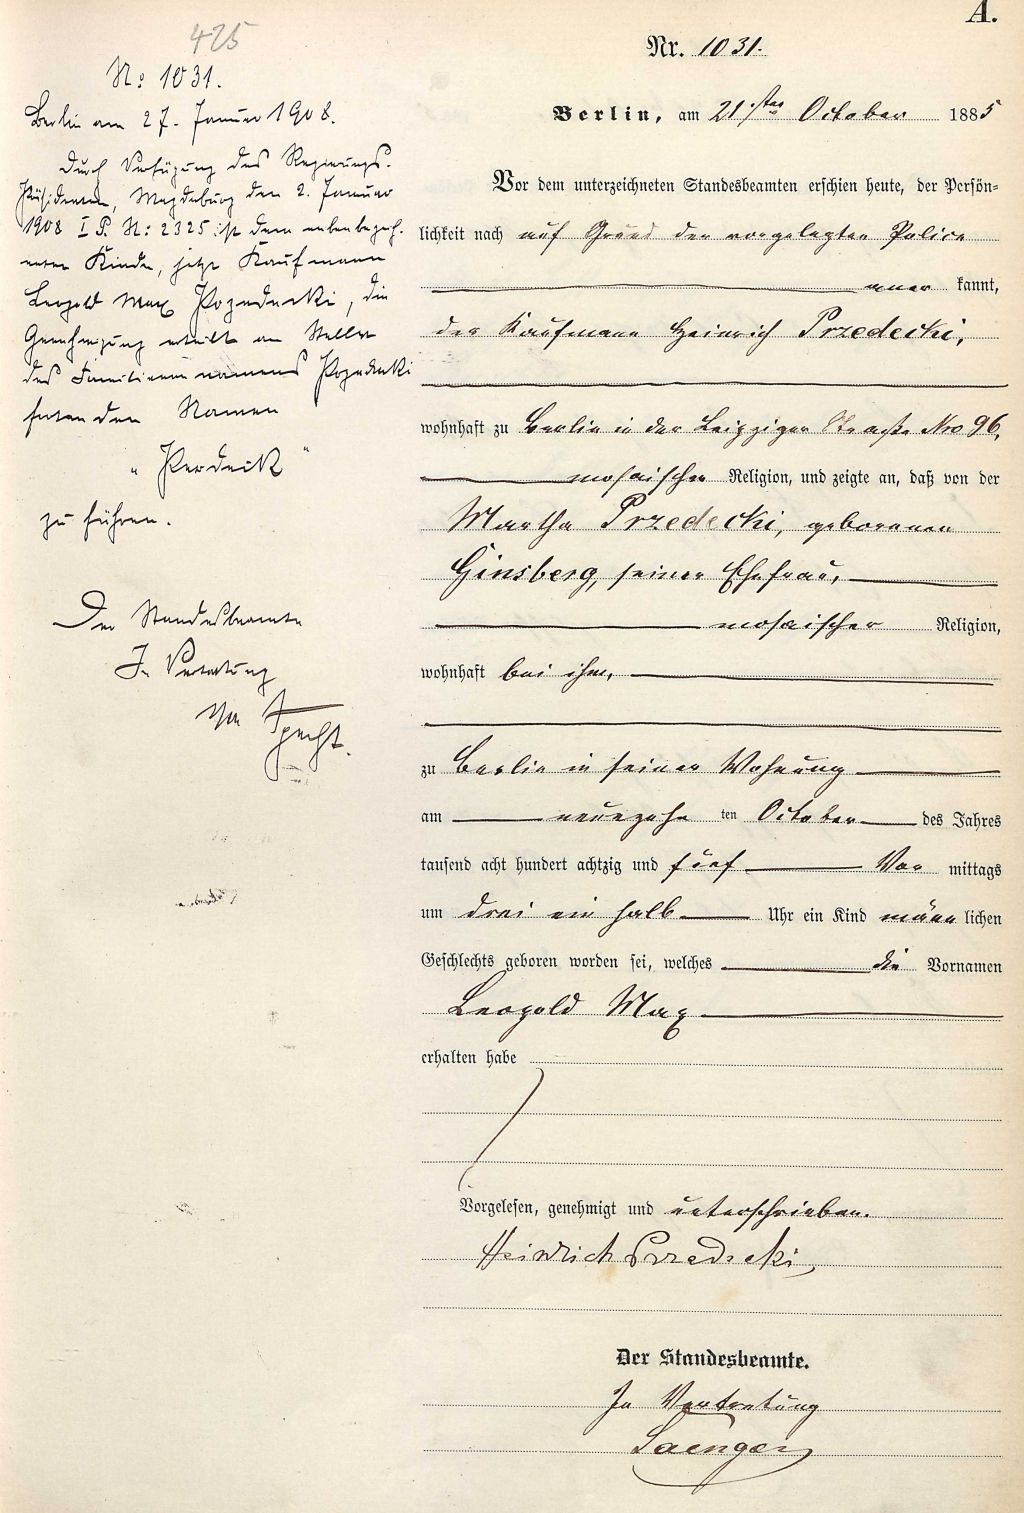 A.
425
No 1031.
Berlin am 27. Januar 1908.
Durch Verfügung des Regierungs-
Präsidenten, Magdeburg den 2. Januar
1908 I P. No: 2325 ist dem nebenbezeich-
neten Kinde, jetzt Kaufmann
Leopold Max Przedecki, die
Genehmigung erteilt an Stelle
des Familiennamens Przedecki
fortan den Namen
"Perdeck"
zu führen.
Der Standesbeamte
In Vertretung
Specht.
Nr. 1031.
Berlin, am 21sten October 1885
Vor dem unterzeichneten Standesbeamten erschien heute, der Persön-
lichkeit nach auf Grund der vorgelegten Police
aner kannt,
der Kaufmann Heinrich Przedecki,
wohnhaft zu Berlin in der Leipziger Straße No 96,
mosaischer Religion, und zeigte an, daß von der
Martha Przedecki, geborenen
Ginsberg, seiner Ehefrau,
mosaischer Religion,
wohnhaft bei ihm,
zu Berlin in seiner Wohnung
am neunzehn ten October des Jahres
tausend acht hundert achtzig und fünf Vor mittags
um drei ein halb Uhr ein Kind männ lichen
Geschlechts geboren worden sei, welches die Vornamen
Leopold Max
erhalten habe
Vorgelesen, genehmigt und unterschrieben.
Heinrich Przedecki
Der Standesbeamte.
In Vertretung
Saenger